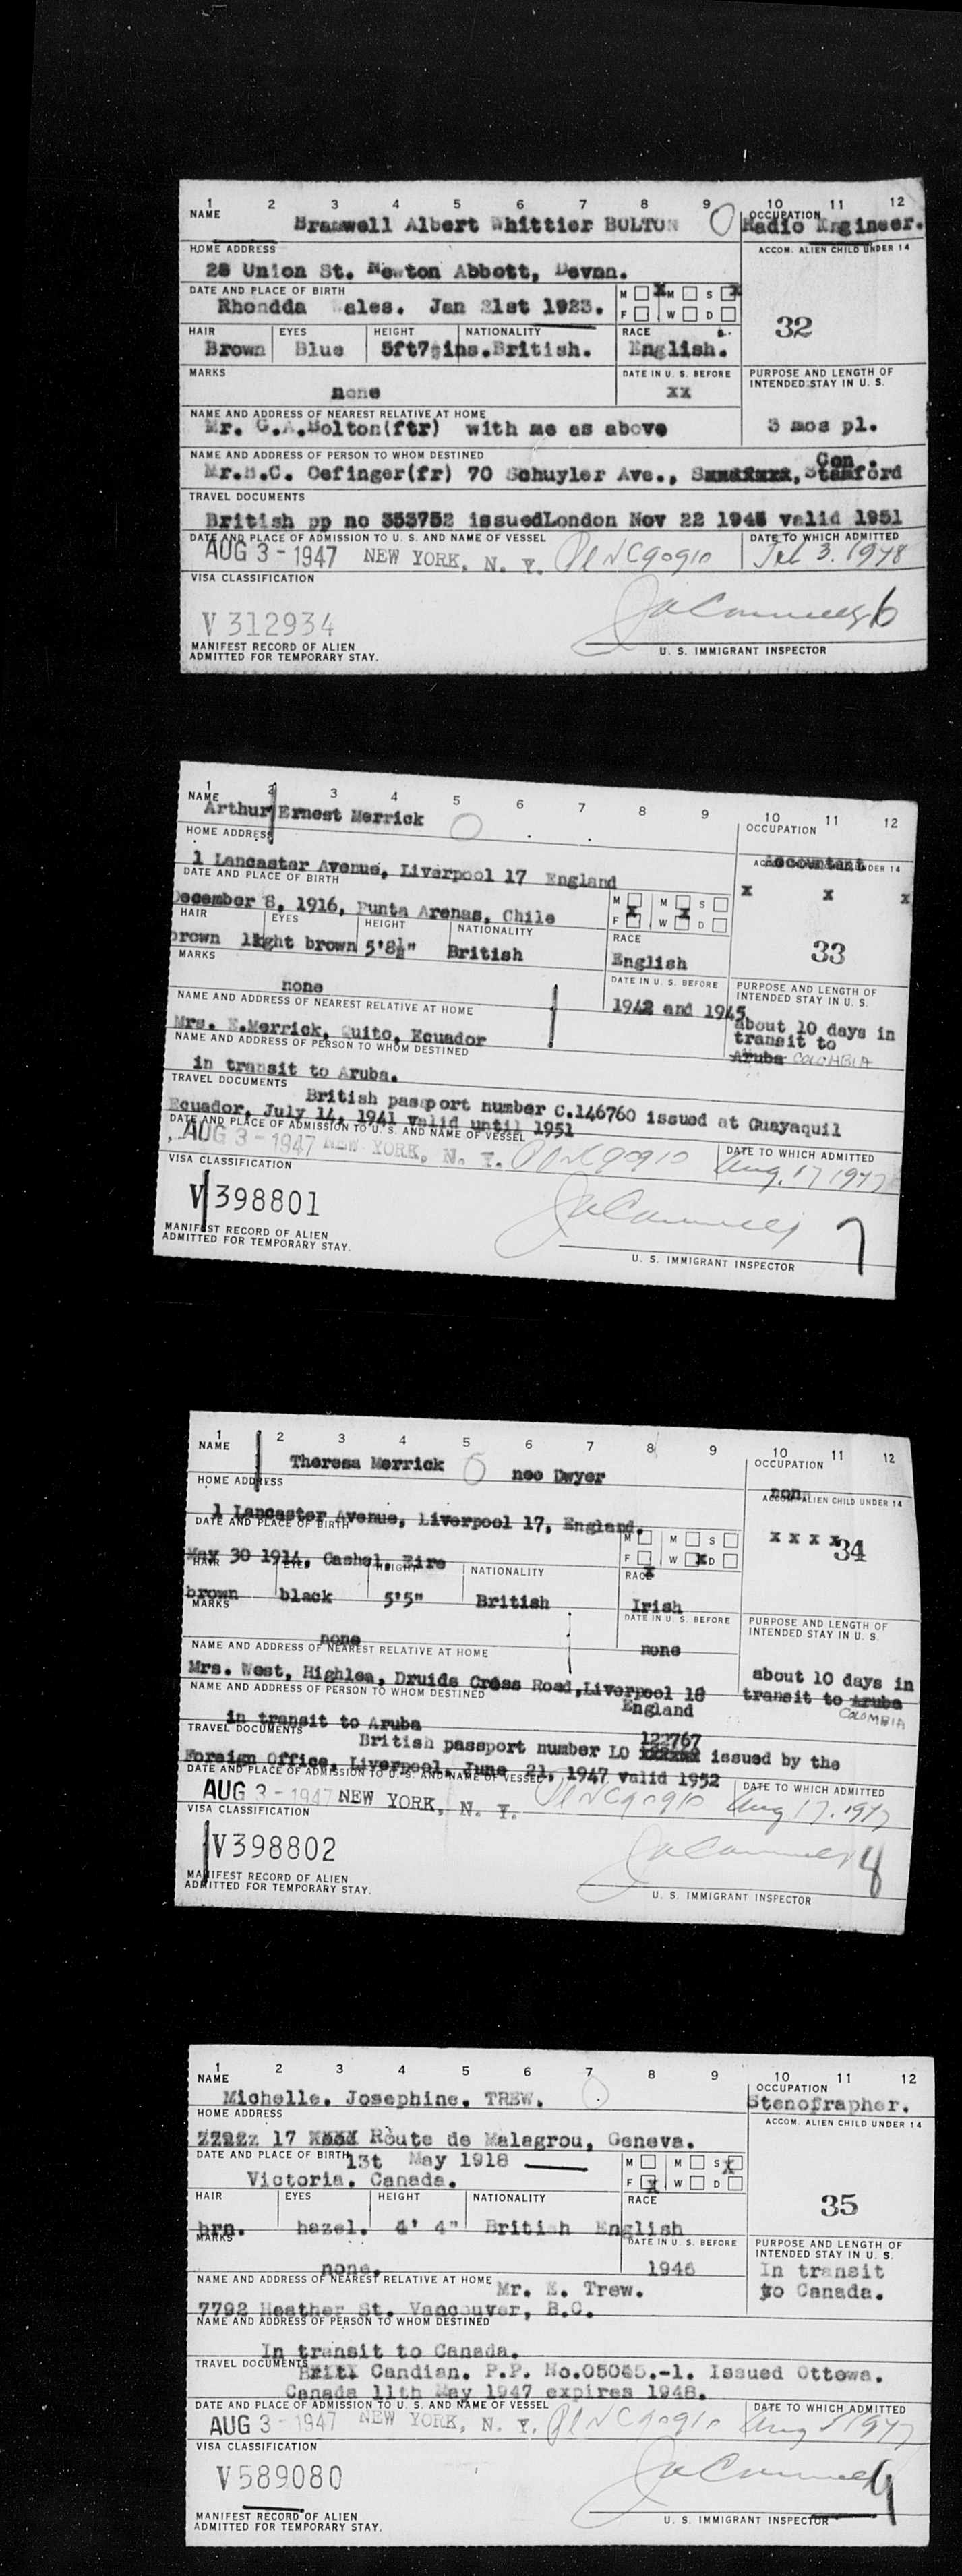 1 2 3 4 5 6 7 8 9 10 11 12
NAME OCCUPATION
Bramwell Albert Whittier BOLTON Radio Engineer.
HOME ADDRESS ACCOM. ALIEN CHILD UNDER 14
28 Union St. Newton Abbott, Devnn.
DATE AND PLACE OF BIRTH M X M S X
Rhondda ales. Jan 21st 1923. F W D
32
HAIR EYES HEIGHT NATIONALITY RACE
Brown Blue 5ft7 ins. British. English.
MARKS DATE IN U. S. BEFORE PURPOSE AND LENGTH OF
INTENDED STAY IN U. S.
none xx
NAME AND ADDRESS OF NEAREST RELATIVE AT HOME
Mr. G.A.Bolton(ftr) with me as above 3 mos pl.
NAME AND ADDRESS OF PERSON TO WHOM DESTINED
Con.
Mr.H.C. Oefinger(fr) 70 Schuyler Ave., Stamford
TRAVEL DOCUMENTS
British pp no 353752 issuedLondon Nov 22 1946 valid 1951
DATE AND PLACE OF ADMISSION TO U. S. AND NAME OF VESSEL DATE TO WHICH ADMITTED
AUG 3 - 1947 NEW YORK, N. Y. Pl NC90910 Feb 3. 1948
VISA CLASSIFICATION
V 312934 6
MANIFEST RECORD OF ALIEN
ADMITTED FOR TEMPORARY STAY. U. S. IMMIGRANT INSPECTOR
1 2 3 4 5 6 7 8 9 10 11 12
NAME OCCUPATION
Arthur Ernest Merrick
HOME ADDRESS Accountant
ACCOM. ALIEN CHILD UNDER 14
1 Lancaster Avenue, Liverpool 17 England
DATE AND PLACE OF BIRTH x x x
December 8, 1916, Punta Arenas, Chile M X M X S
F W D
HAIR EYES HEIGHT NATIONALITY RACE
brown light brown 5'8½" British English
33
MARKS DATE IN U. S. BEFORE PURPOSE AND LENGTH OF
INTENDED STAY IN U. S.
none 1942 and 1945
NAME AND ADDRESS OF NEAREST RELATIVE AT HOME about 10 days in
transit to
Mrs. E.Merrick, Quito, Ecuador Aruba COLOMBIA
NAME AND ADDRESS OF PERSON TO WHOM DESTINED
in transit to Aruba.
TRAVEL DOCUMENTS
British passport number C.146760 issued at Guayaquil
Ecuador, July 14, 1941 valid until 1951
DATE AND PLACE OF ADMISSION TO U. S. AND NAME OF VESSEL DATE TO WHICH ADMITTED
AUG 3 - 1947 NEW YORK, N. Y. Pl NC90910 Aug. 17 1947
VISA CLASSIFICATION
V 398801 7
MANIFEST RECORD OF ALIEN
ADMITTED FOR TEMPORARY STAY. U. S. IMMIGRANT INSPECTOR
1 2 3 4 5 6 7 8 9 10 11 12
NAME OCCUPATION
Theresa Merrick nee Dwyer
HOME ADDRESS non
ACCOM. ALIEN CHILD UNDER 14
1 Lancaster Avenue, Liverpool 17, England.
DATE AND PLACE OF BIRTH M M S x x x x 34
May 30 1914, Cashel, Eire F X W X D
HAIR EYES HEIGHT NATIONALITY RACE
brown black 5'5" British Irish
MARKS DATE IN U. S. BEFORE PURPOSE AND LENGTH OF
INTENDED STAY IN U. S.
none none
NAME AND ADDRESS OF NEAREST RELATIVE AT HOME
Mrs. West, Highlea, Druids Cross Road,Liverpool 18 about 10 days in
England transit to Aruba
COLOMBIA
NAME AND ADDRESS OF PERSON TO WHOM DESTINED
in transit to Aruba
TRAVEL DOCUMENTS 122767
British passport number LO issued by the
Foreign Office, Liverpool, June 21, 1947 valid 1952
DATE AND PLACE OF ADMISSION TO U. S. AND NAME OF VESSEL DATE TO WHICH ADMITTED
AUG 3 - 1947 NEW YORK, N. Y. Pl NC90910 Aug 17. 1947
VISA CLASSIFICATION
V398802 8
MANIFEST RECORD OF ALIEN
ADMITTED FOR TEMPORARY STAY. U. S. IMMIGRANT INSPECTOR
1 2 3 4 5 6 7 8 9 10 11 12
NAME OCCUPATION
Michelle. Josephine. TREW. Stenofrapher.
HOME ADDRESS ACCOM. ALIEN CHILD UNDER 14
17 Route de Malagrou, Geneva.
DATE AND PLACE OF BIRTH 13t May 1918 M M S X
Victoria. Canada. F X W D
HAIR EYES HEIGHT NATIONALITY RACE 35
brn. hazel. 4' 4" British English
MARKS DATE IN U. S. BEFORE PURPOSE AND LENGTH OF
INTENDED STAY IN U. S.
none. 1946 In transit
to Canada.
NAME AND ADDRESS OF NEAREST RELATIVE AT HOME Mr. E. Trew.
7792 Heather St. Vancouver, B.C.
NAME AND ADDRESS OF PERSON TO WHOM DESTINED
In transit to Canada.
TRAVEL DOCUMENTS
Candian. P.P. No.05045.-1. Issued Ottowa.
Canada 11th May 1947 expires 1948.
DATE AND PLACE OF ADMISSION TO U. S. AND NAME OF VESSEL DATE TO WHICH ADMITTED
AUG 3 - 1947 NEW YORK, N. Y. Pl NC90910 Aug 1947
VISA CLASSIFICATION
V589080 9
MANIFEST RECORD OF ALIEN
ADMITTED FOR TEMPORARY STAY. U. S. IMMIGRANT INSPECTOR